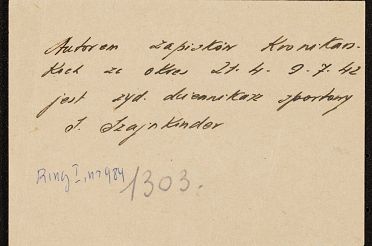 Autorem zapisków Kronikars-
kich za okres 21.4. 9.7.42
jest żyd. dziennikarz sportowy
S. Szajnkinder
Ring I, nr 984
1303.